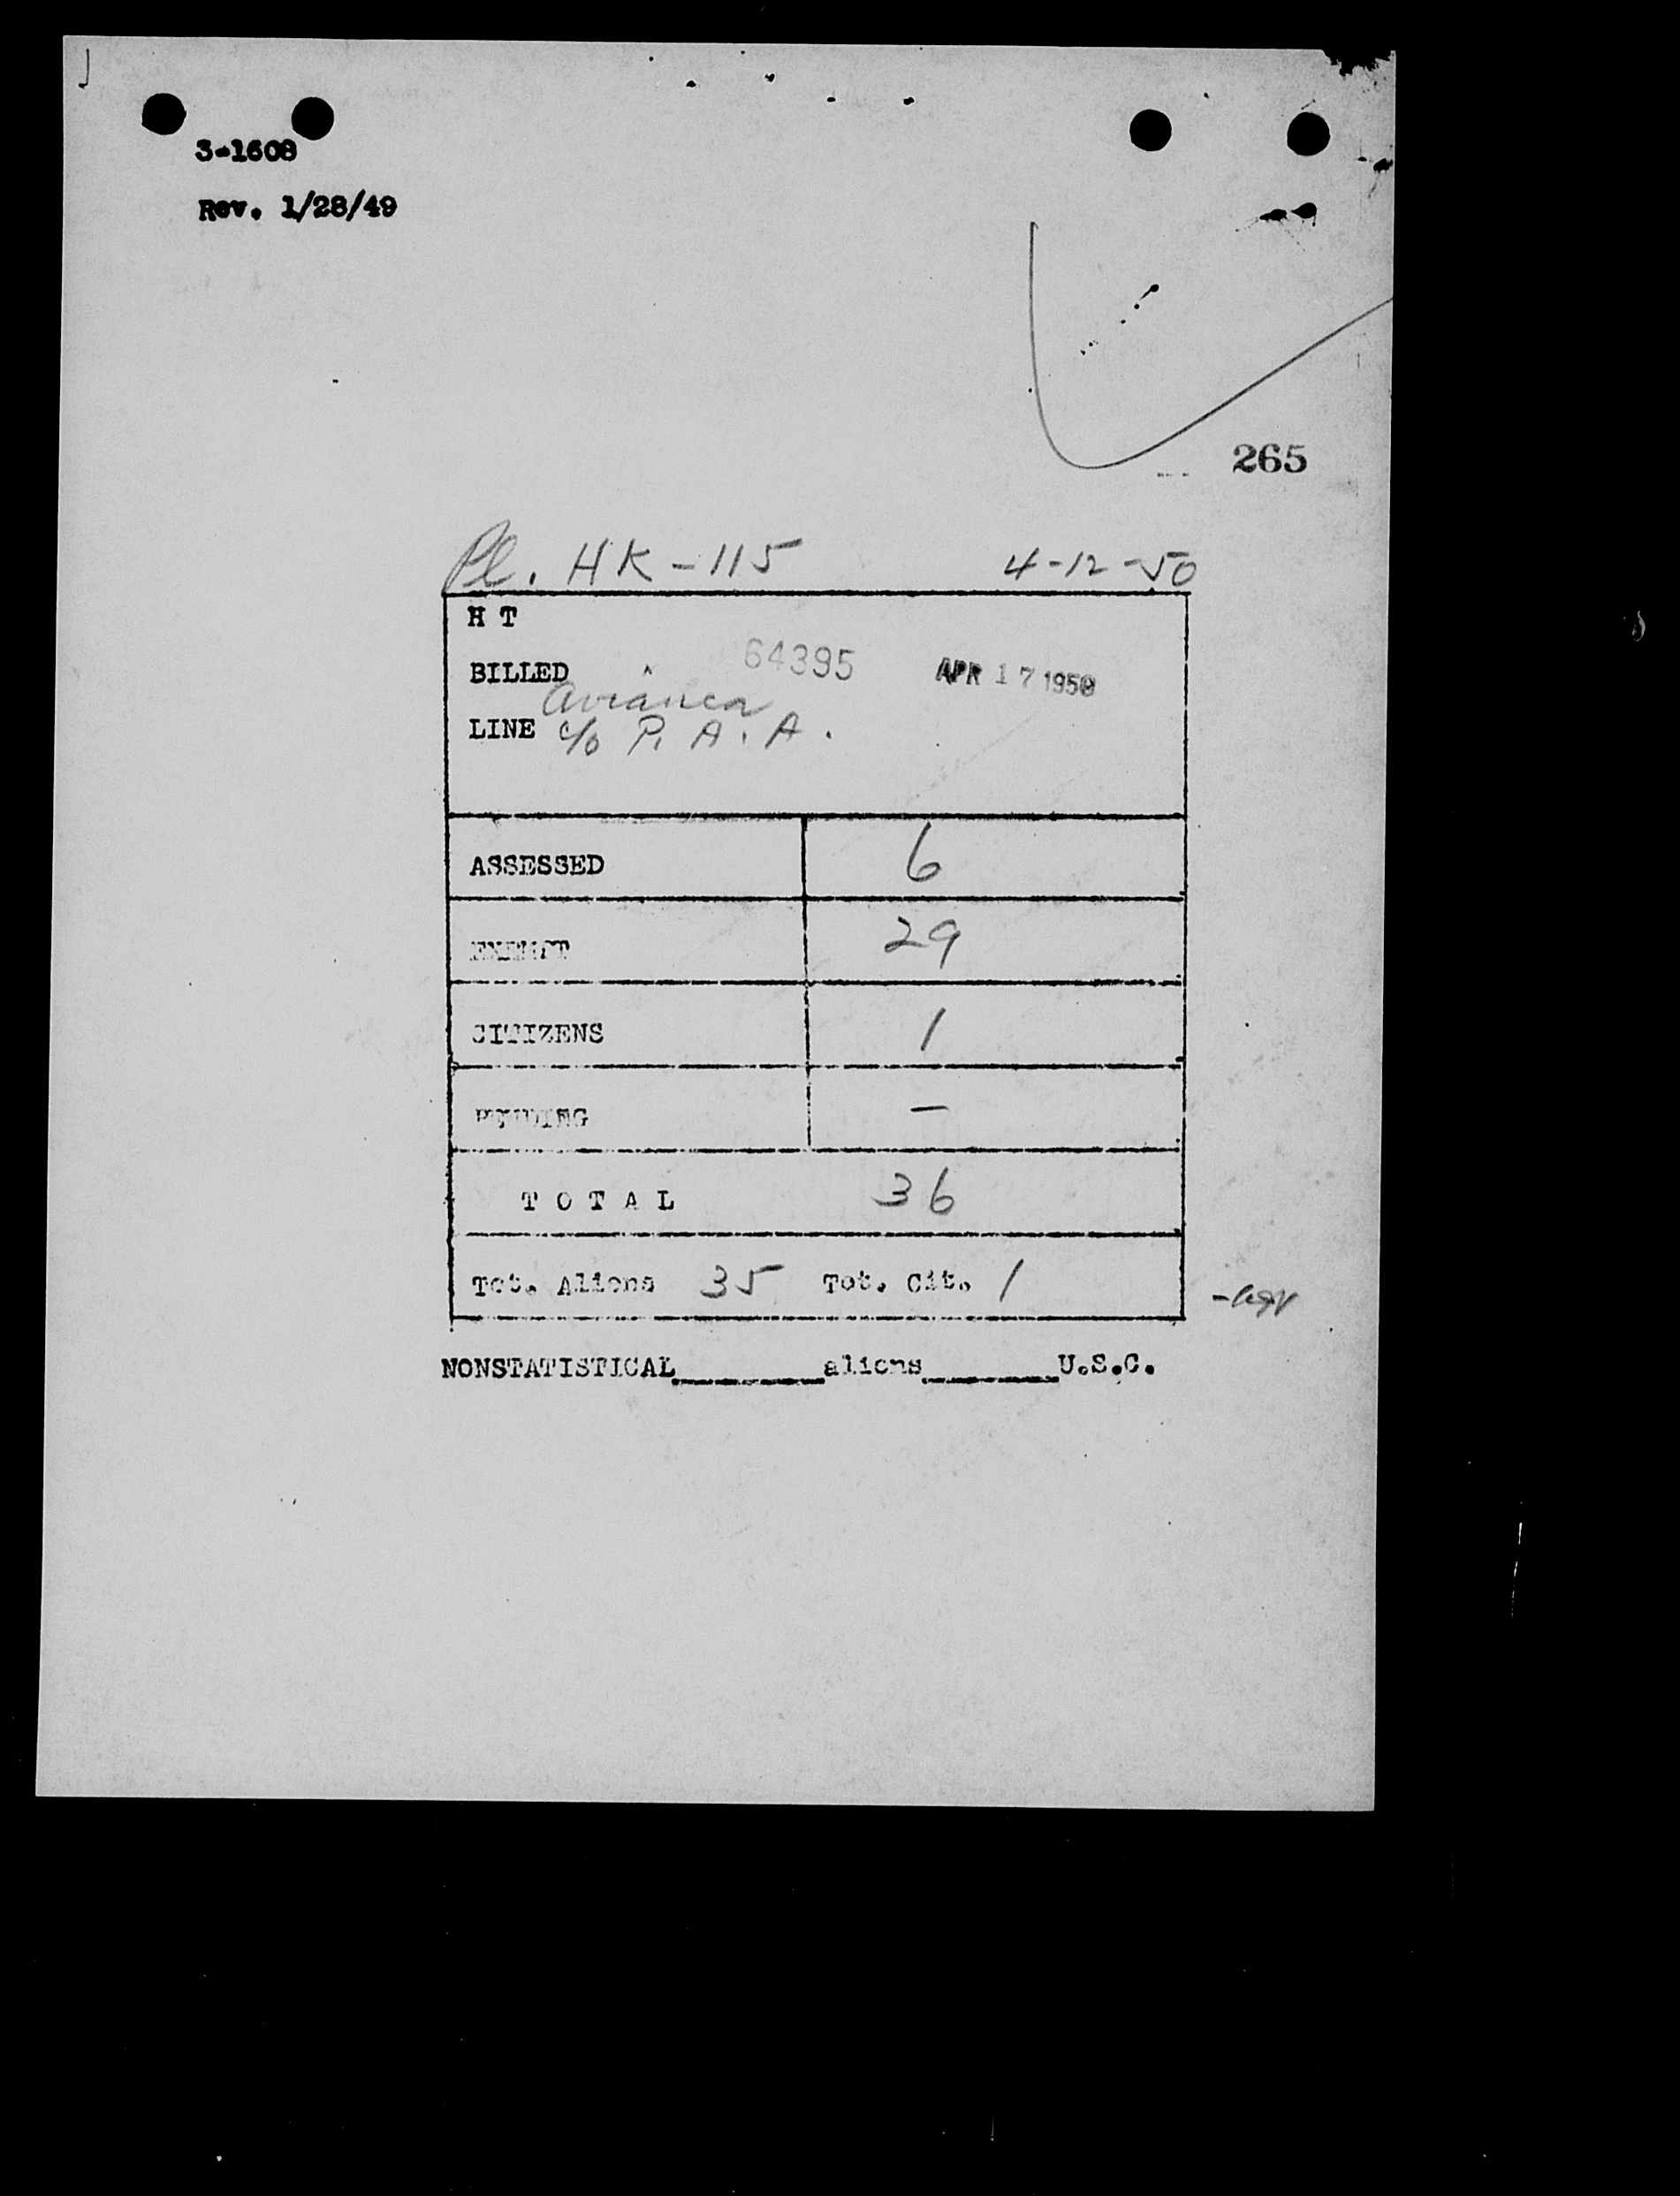 3-1608
Rev. 1/28/49
265
Pl. HK-115 4-12-50
H T
BILLED 64395 APR 17 1950
Avianca
LINE c/o P. A. A.
ASSESSED 6
EXEMPT 29
CITIZENS 1
PENDING —
T O T A L 36
Tot. Aliens 35 Tot. Cit. 1
NONSTATISTICAL________aliens________U.S.C.